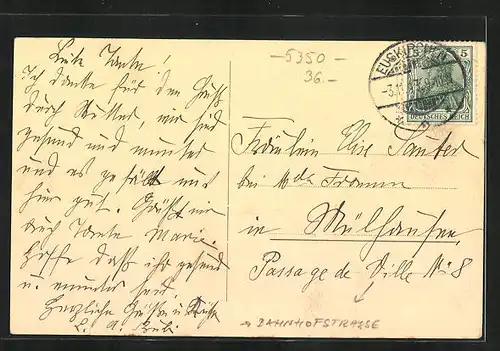 Liebe Tante!
Ich danke für den Gruß
durch Mutter, wir sind
gesund und munter
und es gefällt uns
hier gut. Grüßt mir
auch Tante Marie.
Hoffe daß ihr gesund
u. munter seid.
Herzliche Grüße u. Küsse
- 5350 -
36. -
EUSKIRCHEN
5
DEUTSCHES REICH
Fräulein Elise Sauter
bei Mde Fromm
in Mülhausen,
Passage de Ville No 8
→ BAHNHOFSTRASSE